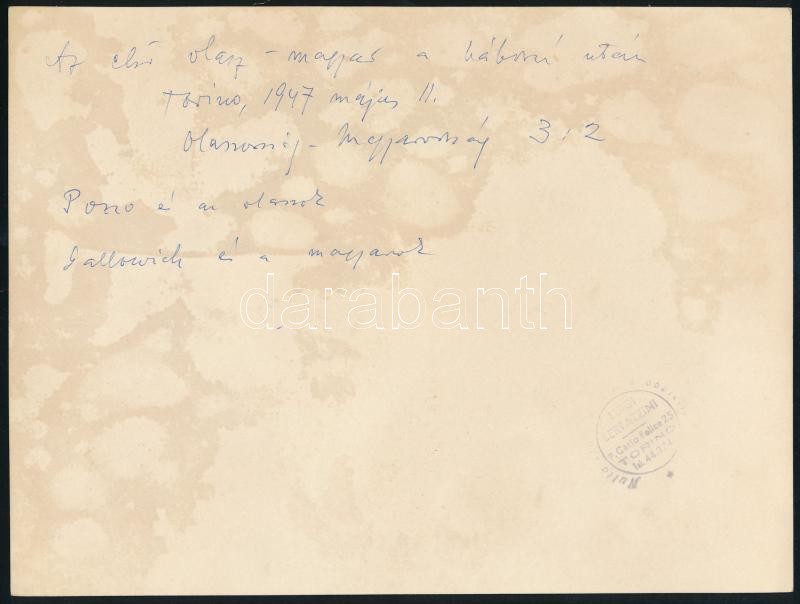 Az első olasz – magyar a háború után
Torino, 1947 május 11.
Olaszország – Magyarország 3:2
Pozzo és az olaszok
Gallowich és a magyarok
darabanth
LUIGI
BERTAZZINI
P. Carlo Felice 25
TORINO